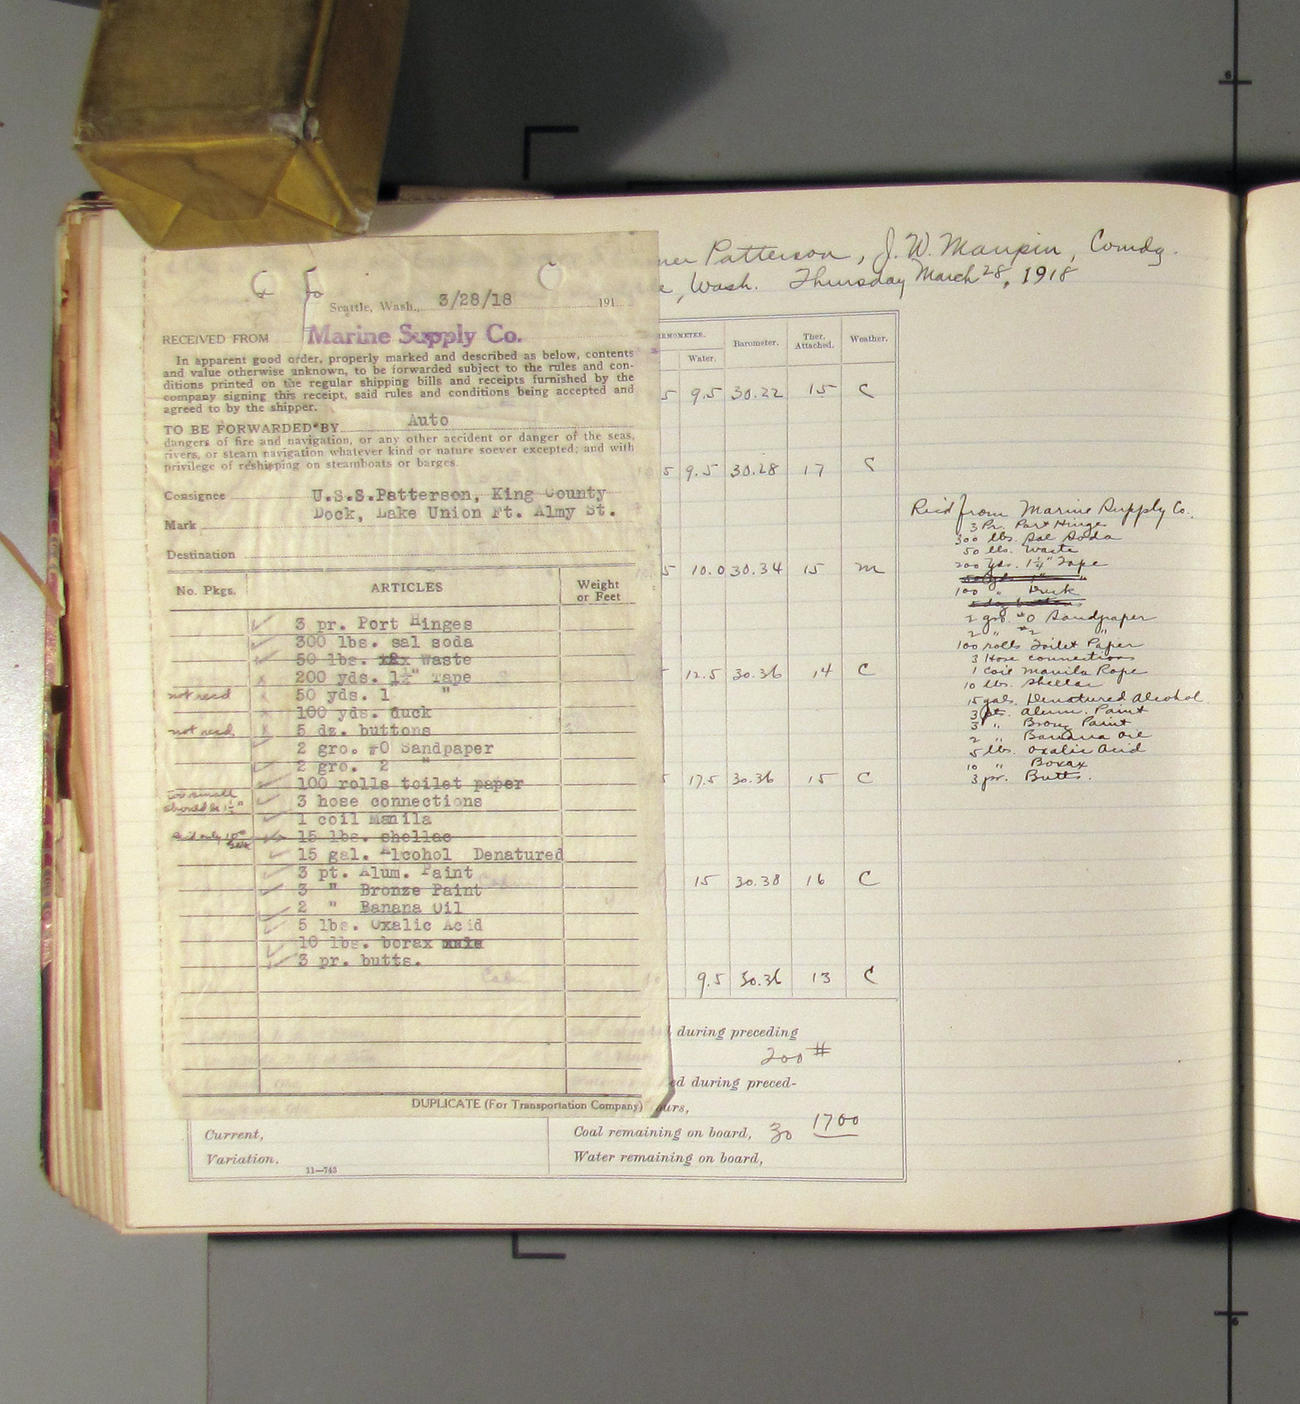 Patterson, J. W. Maupin, Comdg.
Wash. Thursday March 28, 1918
Seattle, Wash., 3/28/18 191
RECEIVED FROM Marine Supply Co.
In apparent good order, properly marked and described as below, contents
and value otherwise unknown, to be forwarded subject to the rules and con-
ditions printed on the regular shipping bills and receipts furnished by the
company signing this receipt, said rules and conditions being accepted and
agreed to by the shipper.
TO BE FORWARDED BY Auto
dangers of fire and navigation, or any other accident or danger of the seas,
rivers, or steam navigation whatever kind or nature soever excepted; and with
privilege of reshipping on steamboats or barges.
Consignee U.S.S.Patterson, King County
Dock, Lake Union Ft. Almy St.
Mark
Destination
No. Pkgs. ARTICLES Weight or Feet
3 pr. Port Hinges
300 lbs. sal soda
50 lbs. Waste
200 yds. 1¼" Tape
not recd 50 yds. 1 "
100 yds. duck
not recd. 5 dz. buttons
2 gro. #0 Sandpaper
2 gro. 2 "
100 rolls toilet paper
too small
should be 1½" 3 hose connections
1 coil Manila
15 lbs. shellac
15 gal. Alcohol Denatured
3 pt. Alum. Paint
3 " Bronze Paint
2 " Banana Oil
5 lbs. Oxalic Acid
10 lbs. borax
3 pr. butts.
DUPLICATE (For Transportation Company)
Water. Barometer. Ther. Attached. Weather.
5 9.5 30.22 15 C
5 9.5 30.28 17 C
5 10.0 30.34 15 m
12.5 30.36 14 C
17.5 30.36 15 C
15 30.38 16 C
9.5 30.36 13 C
during preceding
200 #
during preced-
Current,
Coal remaining on board, 30 1700
Variation.
Water remaining on board,
11—743
Rec'd from Marine Supply Co.
3 Pr. Port Hinge
300 lbs. Sal Soda
50 lbs. Waste
200 yds. 1¼" Tape
100 " Duck
2 gro. #0 Sandpaper
2 " #2 "
100 rolls Toilet Paper
3 Hose connections
1 coil Manila Rope
10 lbs. Shellac
15 gals. Denatured Alcohol
3 pts. Alum. Paint
3 " Bronz Paint
2 " Banana Oil
5 lbs. Oxalic Acid
10 " Borax
3 pr. Butts.